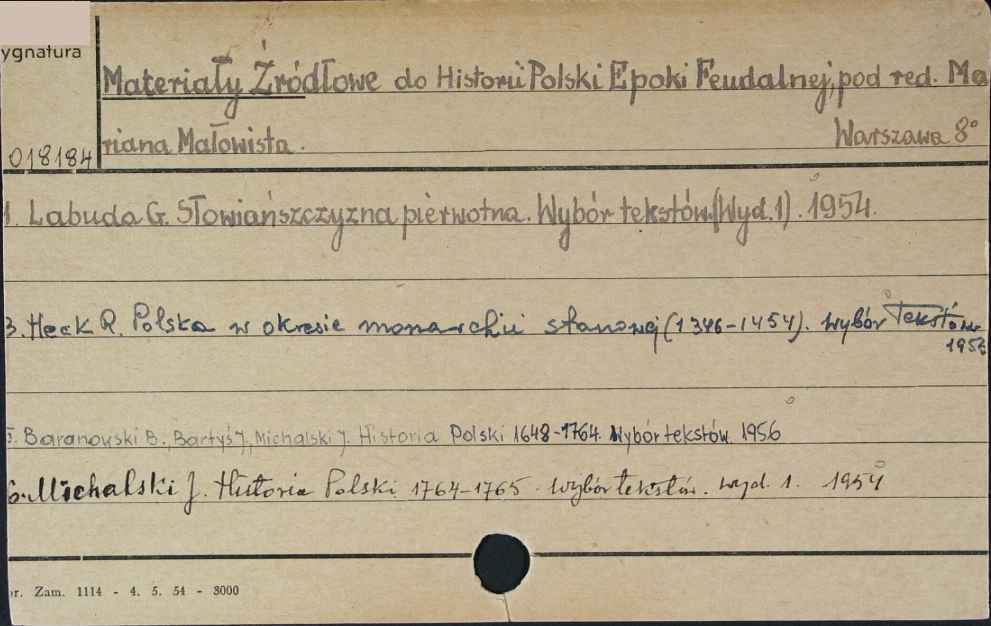 ygnatura
Materiały Źródłowe do Historii Polski Epoki Feudalnej, pod red. Ma
018184 riana Małowista. Warszawa 8°
1. Labuda G. Słowiańszczyzna pierwotna. Wybór tekstów. (Wyd. 1). 1954.
3. Heck R. Polska w okresie monarchii stanowej (1346-1454). Wybór Tekstów
5. Baranowski B., Bartyś J., Michalski J. Historia Polski 1648-1764. Wybór tekstów. 1956
6. Michalski J. Historia Polski 1764-1765. Wybór tekstów. wyd. 1. 1954
r. Zam. 1114 - 4. 5. 54 - 3000